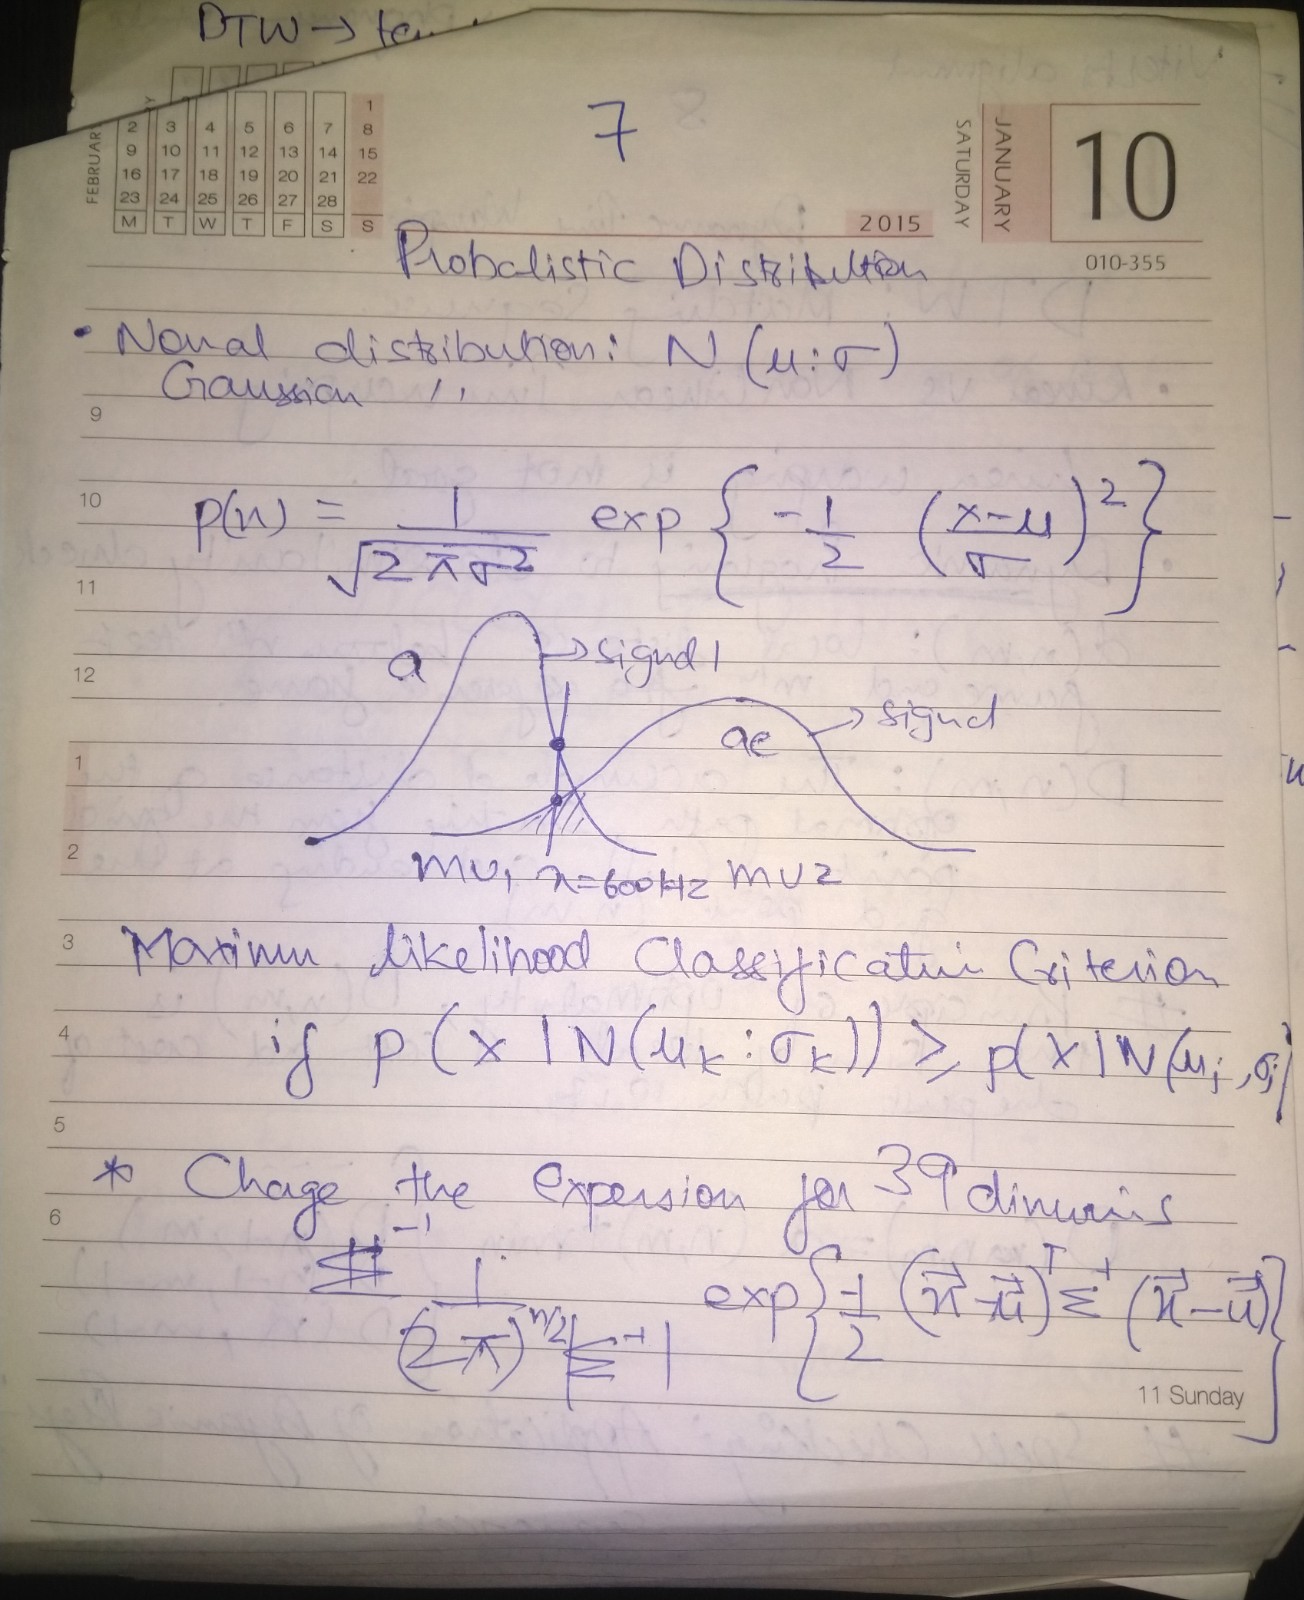 DTW →
7
FEBRUAR
1
2 3 4 5 6 7 8
9 10 11 12 13 14 15
16 17 18 19 20 21 22
23 24 25 26 27 28
M T W T F S S
2015
SATURDAY
JANUARY
10
010-355
Probalistic Distribution
• Nomal distribution: N (μ:σ)
Gaussian 〃
9
10
p(x) = 1/√2πσ² exp { -1/2 (x-μ/σ)² }
11
a → signal 1
12
ae → signal
1
2
mu1 x=600Hz mu2
3
Maximum likelihood Classification Criterion
4
if p (x | N(μk:σk)) ≥ p(x | N(μj,σj)
5
* Chage the expersion for 39 dimensions
6
1/(2π)^n/2 |Σ⁻¹| exp { -1/2 (x⃗-μ⃗)ᵀ Σ⁻¹ (x⃗-μ⃗) }
11 Sunday